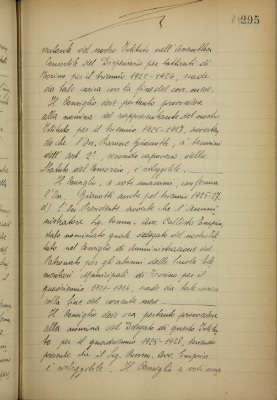 295
sentante del nostro Istituto nell'Assemblea
Consorziale del Dispensario per lattanti di
Torino per il triennio 1921-1924, scade
da tale carica con la fine del cor. mese.
Il Consiglio deve pertanto provvedere
alla nomina del rappresentante del nostro
Istituto, per il triennio 1925-1927, avverten-
do che l'On. Barone Gianotti, a' termini
dell'art. 2°, secondo capoverso dello
Statuto del Consorzio, è rieleggibile.
Il Consiglio, a voti unanimi, conferma
l'On. Gianotti anche pel triennio 1925-27.
d) L'On. Presidente avverte che l'Ammi-
nistratore Sig. Comm. Avv.
stato nominato quale delegato del nostro Isti-
tuto nel Consiglio di Amministrazione del
Patronato per gli alunni delle Scuole Ele-
mentari Municipali di Torino per il
quadriennio 1921-1924, scade da tale carica
colla fine del corrente mese
Il Consiglio deve ora pertanto provvedere
alla nomina del Delegato di questo Istitu-
to per il quadriennio 1925-1928, tenendo
presente che il Sig. Comm. Avv.
è rieleggibile. Il Consiglio a voti una